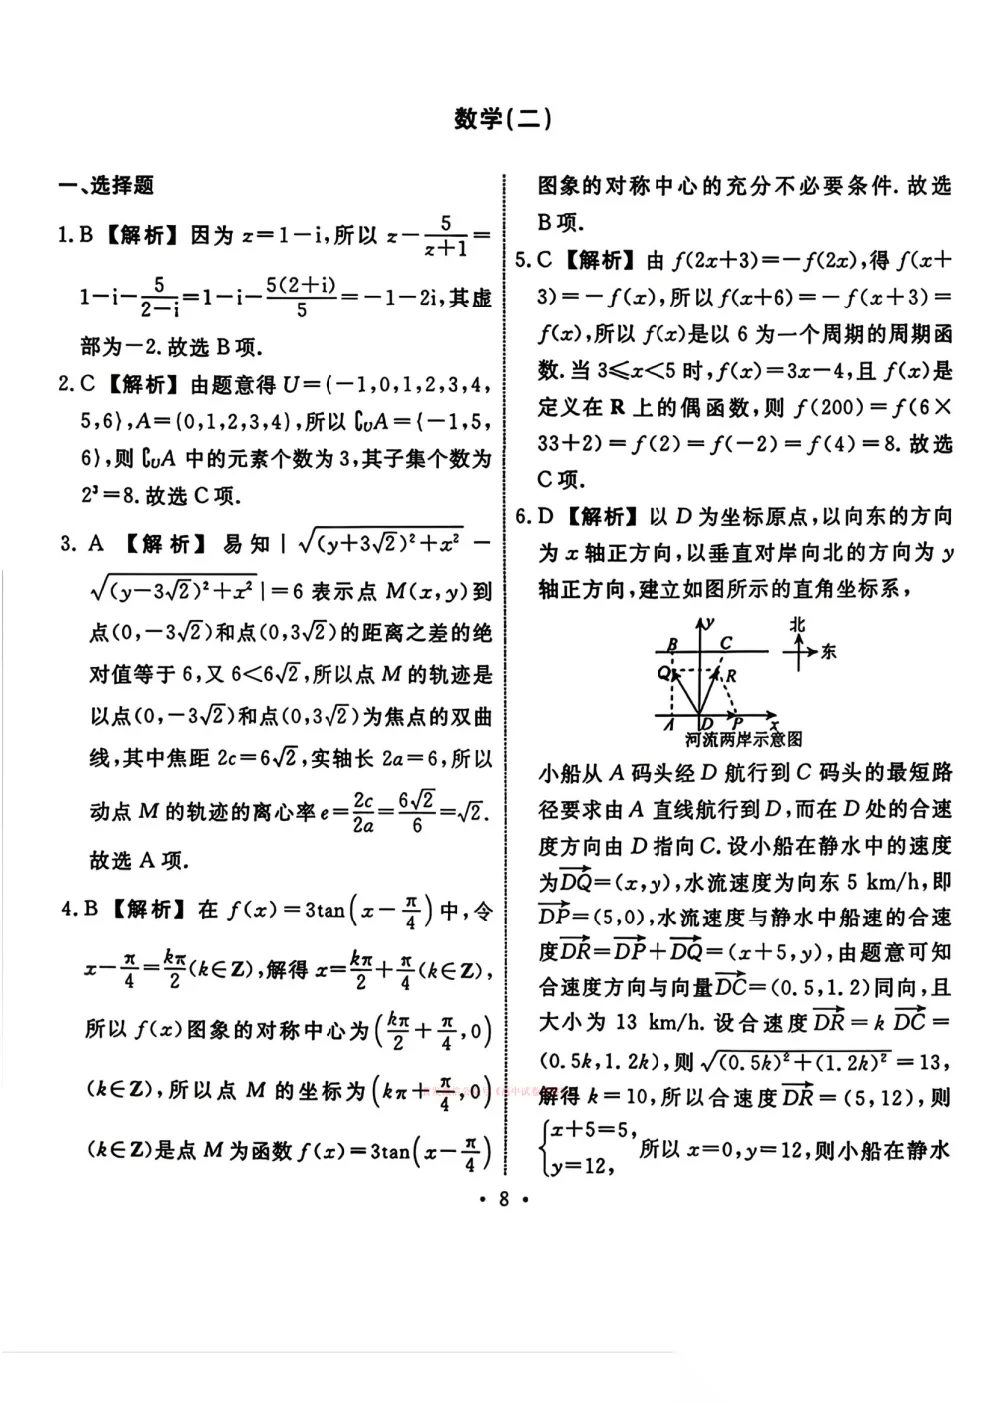 数学(二)
一、选择题
1. B 【解析】因为 z=1-i,所以 z-\frac{5}{z+1}=
1-i-\frac{5}{2-i}=1-i-\frac{5(2+i)}{5}=-1-2i,其虚
部为-2.故选 B 项.
2. C 【解析】由题意得 U={-1,0,1,2,3,4,
5,6},A={0,1,2,3,4},所以 ∁_UA={-1,5,
6},则 ∁_UA 中的元素个数为 3,其子集个数为
2³=8.故选 C 项.
3. A 【解析】易知|\sqrt{(y+3\sqrt{2})²+x²}-
\sqrt{(y-3\sqrt{2})²+x²}|=6 表示点 M(x,y)到
点(0,-3√2)和点(0,3√2)的距离之差的绝
对值等于 6,又 6<6√2,所以点 M 的轨迹是
以点(0,-3√2)和点(0,3√2)为焦点的双曲
线,其中焦距 2c=6√2,实轴长 2a=6,所以
动点 M 的轨迹的离心率 e=\frac{2c}{2a}=\frac{6√2}{6}=√2.
故选 A 项.
4. B 【解析】在 f(x)=3tan(x-\frac{π}{4})中,令
x-\frac{π}{4}=\frac{kπ}{2}(k∈Z),解得 x=\frac{kπ}{2}+\frac{π}{4}(k∈Z),
所以 f(x)图象的对称中心为(\frac{kπ}{2}+\frac{π}{4},0)
(k∈Z),所以点 M 的坐标为(kπ+\frac{π}{4},0)
(k∈Z)是点 M 为函数 f(x)=3tan(x-\frac{π}{4})
图象的对称中心的充分不必要条件.故选
B 项.
5. C 【解析】由 f(2x+3)=-f(2x),得 f(x+
3)=-f(x),所以 f(x+6)=-f(x+3)=
f(x),所以 f(x)是以 6 为一个周期的周期函
数.当 3⩽x<5 时,f(x)=3x-4,且 f(x)是
定义在 R 上的偶函数,则 f(200)=f(6×
33+2)=f(2)=f(-2)=f(4)=8.故选
C 项.
6. D 【解析】以 D 为坐标原点,以向东的方向
为 x 轴正方向,以垂直对岸向北的方向为 y
轴正方向,建立如图所示的直角坐标系,
y 北
B C 东
Q R
A D P x
河流两岸示意图
小船从 A 码头经 D 航行到 C 码头的最短路
径要求由 A 直线航行到 D,而在 D 处的合速
度方向由 D 指向 C.设小船在静水中的速度
为\overrightarrow{DQ}=(x,y),水流速度为向东 5 km/h,即
\overrightarrow{DP}=(5,0),水流速度与静水中船速的合速
度\overrightarrow{DR}=\overrightarrow{DP}+\overrightarrow{DQ}=(x+5,y),由题意可知
合速度方向与向量\overrightarrow{DC}=(0.5,1.2)同向,且
大小为 13 km/h.设合速度\overrightarrow{DR}=k\overrightarrow{DC}=
(0.5k,1.2k),则\sqrt{(0.5k)²+(1.2k)²}=13,
解得 k=10,所以合速度\overrightarrow{DR}=(5,12),则
{x+5=5,
y=12, 所以 x=0,y=12,则小船在静水
· 8 ·